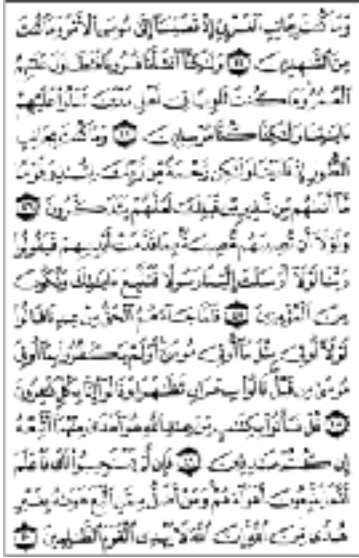 وَمَا كُنتَ بِجَانِبِ ٱلْغَرْبِىِّ إِذْ قَضَيْنَآ إِلَىٰ مُوسَى ٱلْأَمْرَ وَمَا كُنتَ
مِنَ ٱلشَّٰهِدِينَ ٤٤ وَلَٰكِنَّآ أَنشَأْنَا قُرُونًا فَتَطَاوَلَ عَلَيْهِمُ
ٱلْعُمُرُ وَمَا كُنتَ ثَاوِيًا فِىٓ أَهْلِ مَدْيَنَ تَتْلُوا۟ عَلَيْهِمْ
ءَايَٰتِنَا وَلَٰكِنَّا كُنَّا مُرْسِلِينَ ٤٥ وَمَا كُنتَ بِجَانِبِ
ٱلطُّورِ إِذْ نَادَيْنَا وَلَٰكِن رَّحْمَةً مِّن رَّبِّكَ لِتُنذِرَ قَوْمًا
مَّآ أَتَىٰهُم مِّن نَّذِيرٍ مِّن قَبْلِكَ لَعَلَّهُمْ يَتَذَكَّرُونَ ٤٦
وَلَوْلَآ أَن تُصِيبَهُم مُّصِيبَةٌۢ بِمَا قَدَّمَتْ أَيْدِيهِمْ فَيَقُولُوا۟
رَبَّنَا لَوْلَآ أَرْسَلْتَ إِلَيْنَا رَسُولًا فَنَتَّبِعَ ءَايَٰتِكَ وَنَكُونَ
مِنَ ٱلْمُؤْمِنِينَ ٤٧ فَلَمَّا جَآءَهُمُ ٱلْحَقُّ مِنْ عِندِنَا قَالُوا۟
لَوْلَآ أُوتِىَ مِثْلَ مَآ أُوتِىَ مُوسَىٰٓ أَوَلَمْ يَكْفُرُوا۟ بِمَآ أُوتِىَ
مُوسَىٰ مِن قَبْلُ قَالُوا۟ سِحْرَانِ تَظَٰهَرَا وَقَالُوٓا۟ إِنَّا بِكُلٍّ كَٰفِرُونَ
٤٨ قُلْ فَأْتُوا۟ بِكِتَٰبٍ مِّنْ عِندِ ٱللَّهِ هُوَ أَهْدَىٰ مِنْهُمَآ أَتَّبِعْهُ
إِن كُنتُمْ صَٰدِقِينَ ٤٩ فَإِن لَّمْ يَسْتَجِيبُوا۟ لَكَ فَٱعْلَمْ
أَنَّمَا يَتَّبِعُونَ أَهْوَآءَهُمْ وَمَنْ أَضَلُّ مِمَّنِ ٱتَّبَعَ هَوَىٰهُ بِغَيْرِ
هُدًى مِّنَ ٱللَّهِ إِنَّ ٱللَّهَ لَا يَهْدِى ٱلْقَوْمَ ٱلظَّٰلِمِينَ ٥٠